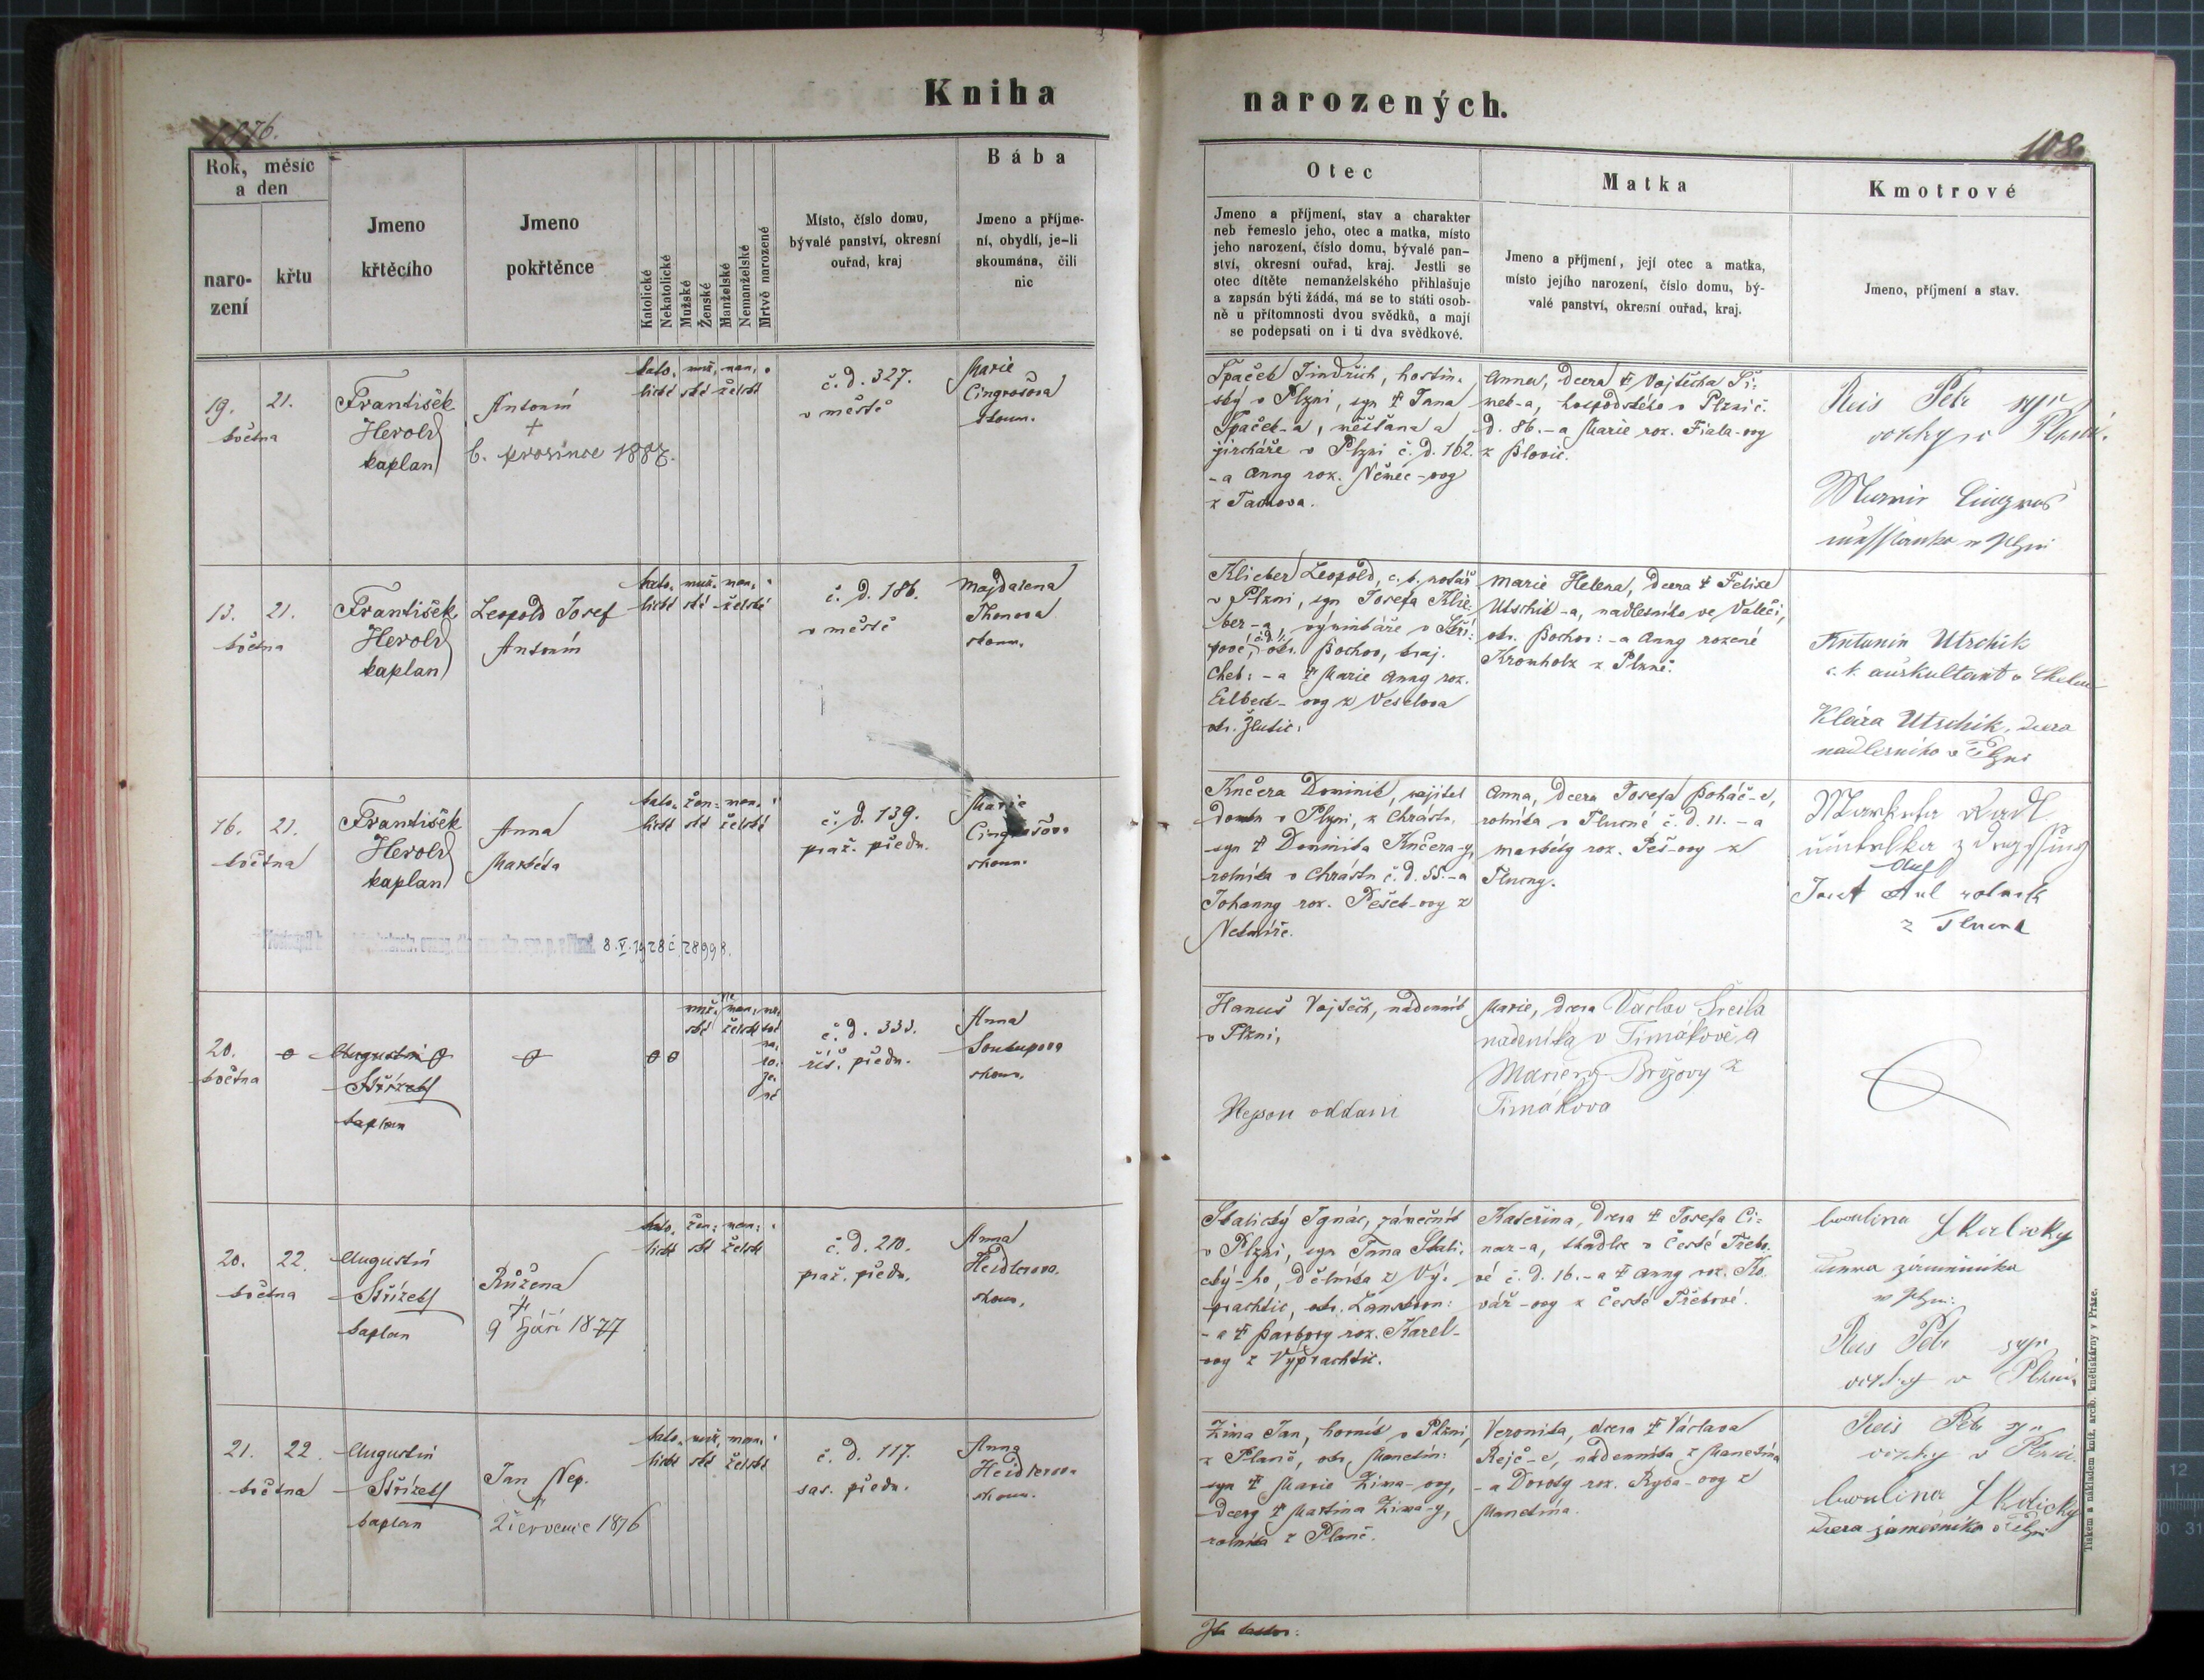 Kniha
narozených.
1876.
108.
Rok, měsíc
a den
naro-
zení
křtu
Jmeno
křtěcího
Jmeno
pokřtěnce
Katolické
Nekatolické
Mužské
Ženské
Manželské
Nemanželské
Mrtvě narozené
Místo, číslo domu,
bývalé panství, okresní
ouřad, kraj
Bába
Jmeno a příjme-
ní, obydlí, je-li
skoumána, čili
nic
Otec
Jmeno a příjmení, stav a charakter
neb řemeslo jeho, otec a matka, místo
jeho narození, číslo domu, bývalé pan-
ství, okresní ouřad, kraj. Jestli se
otec dítěte nemanželského přihlašuje
a zapsán býti žádá, má se to státi osob-
ně u přítomnosti dvou svědků, a mají
se podepsati on i ti dva svědkové.
Matka
Jmeno a příjmení, její otec a matka,
místo jejího narození, číslo domu, bý-
valé panství, okresní ouřad, kraj.
Kmotrové
Jmeno, příjmení a stav.
19. 21.
května
František
Herold
kaplan
Antonín
+
6. prosince 1887.
kato- muž- man-
lické ské želské
č. d. 327.
v městě
Marie
Cingrošova
skoum.
Špaček Jindřich, hostin-
ský v Plzni, syn † Jana
Špaček-a, měšťana a
jircháře v Plzni č. d. 162.
- a Anny roz. Němec-ovy
z Tachova.
Anna, dcera † Vojtěcha Ši-
mek-a, hospodského v Plzni č.
d. 86. - a Marie roz. Fiala-ovy
z Blovic.
Reis Petr syn
vozky v Plzni.
13. 21.
května
František
Herold
kaplan
Leopold Josef
Antonín
kato- muž- man-
lické ské želské
č. d. 186.
v městě
Majdalena
Thonova
skoum.
Klieber Leopold, c. k. notář
v Plzni, syn Josefa Klie-
ber-a, výminkáře v
okr. Bochov, kraj.
Cheb: - a † Marie Anny roz.
z Veselova
okr. Žlutic.
Marie Helena, dcera † Felixe
Utschik-a, nadlesního ve Valeči,
okr. Bochov: - a Anny rozené
Kronholz z Plzně.
Antonín Utschik
c. k. auskultant v
Klára Utschik, dcera
nadlesního v Plzni
16. 21.
května
František
Herold
kaplan
Anna
Markéta
kato- žen- man-
lické ské želské
č. d. 139.
praž. předm.
Marie
Cingrošova
skoum.
8. V. 1928 č. 28998.
Kučera Dominik, majitel
domu v Plzni, z Chrástu,
syn † Dominika Kučera-y,
rolníka v Chrástu č. d. 55. - a
Johanny roz. Pešek-ovy z
Nekmíře.
Anna, dcera Josefa Boháč-e,
rolníka v Tlucné č. d. 11. - a
Markéty roz. Peš-ovy z
Tlucny.
Josef Aul rolník
z Tlucné
20.
května
Augustin
Střízek
kaplan
muž- man- na-
ské želské
ro-
ze-
né
č. d. 333.
říš. předm.
Anna
Soukupova
skoum.
Hanuš Vojtěch, nádenník
v Plzni,
Nejsou oddáni
Marie, dcera Václav
nádeníka v Timákově a
Marie
Timákova
20. 22.
května
Augustin
Střízek
kaplan
Růžena
†
9 Září 1877
kato- žen- man-
lické ské želské
č. d. 210.
praž. předm.
Anna
Heidlerova
skoum.
Skalický Ignác, zámečník
v Plzni, syn Jana Skali-
cký-ho, dělníka z Vý-
prachtic, okr. Lanškron:
- a † Barbory roz. Karel-
ovy z Výprachtic.
Kateřina, dcera † Josefa Ci-
nar-a, tkadlce v České Třebo-
vé č. d. 16. - a † Anny roz. Ko-
vář-ovy z České Třebové.
Skalicky
zámečníka
v Plzni.
Reis Petr syn
vozky v Plzni
21. 22.
května
Augustin
Střízek
kaplan
Jan Nep.
†
2 Července 1876
kato- muž- man-
lické ské želské
č. d. 117.
sas. předm.
Anna
Heidlerova
skoum.
Zima Jan, horník v Plzni,
z Planě, okr. Manetín:
syn † Marie Zima-ovy,
dcery † Martina Zima-y,
rolníka z Planě.
Veronika, dcera † Václava
Rejč-e, nádenníka z Manetína
- a Doroty roz. Ryba-ovy z
Manetína.
Reis Petr syn
vozky v Plzni.
Skalicky
dcera zámečníka v Plzni
Tiskem a nákladem kníž. arcib. knětiskárny v Praze.